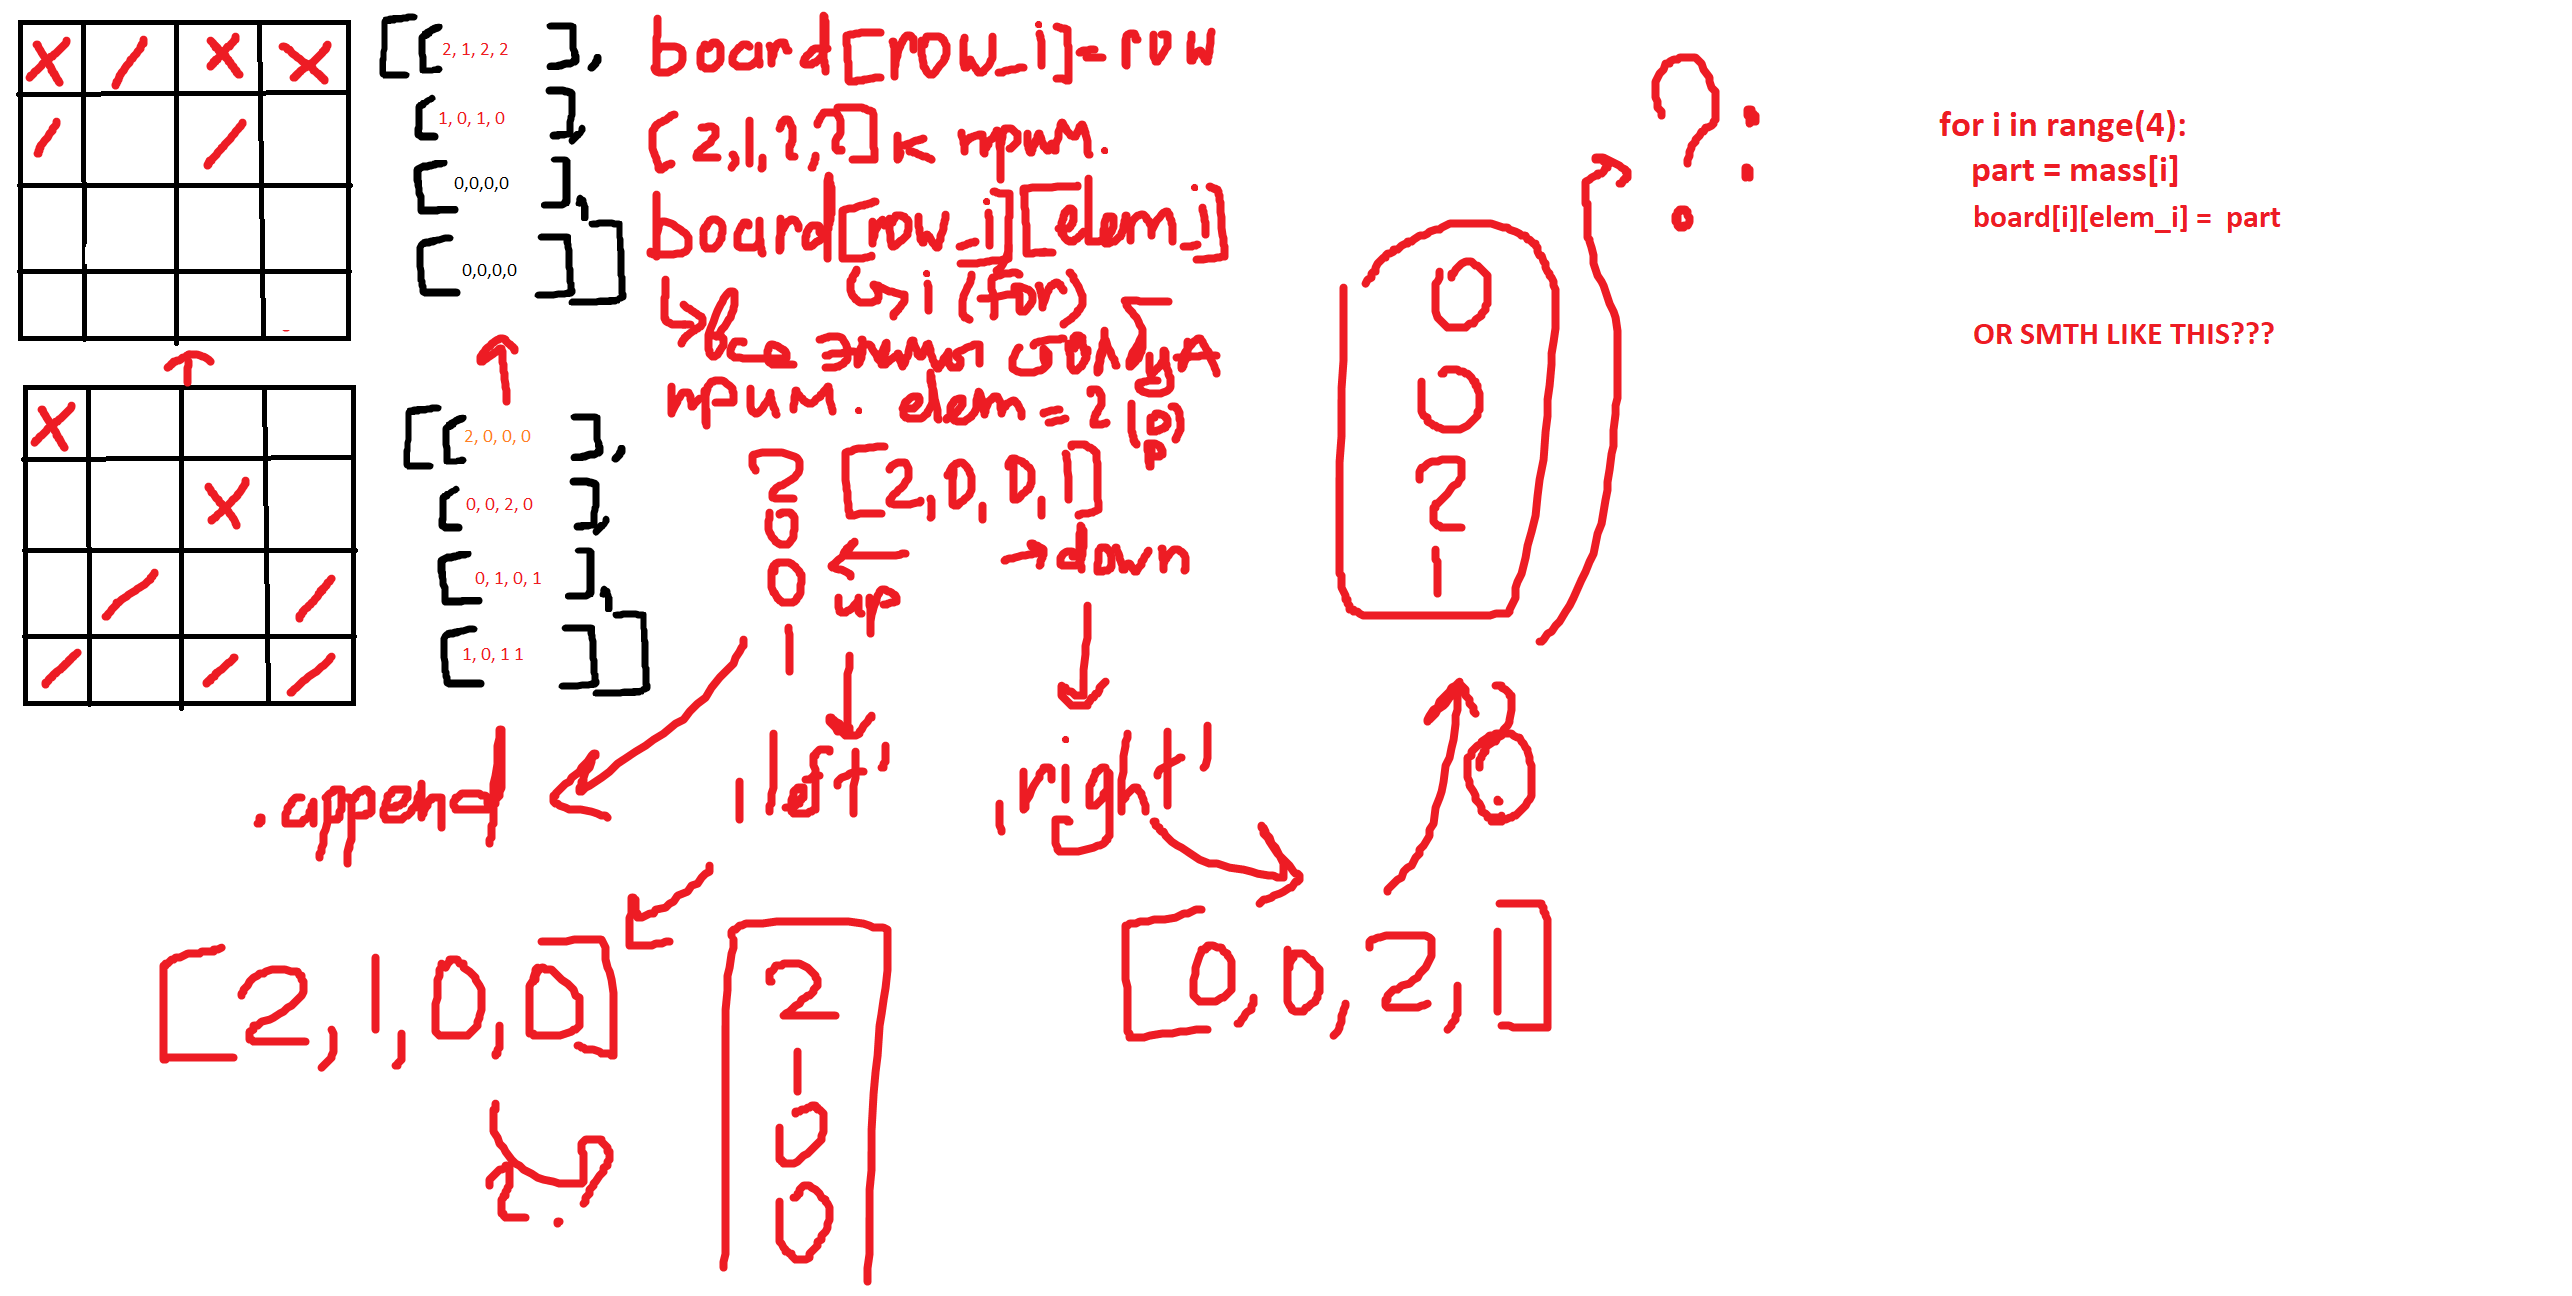 [[2, 1, 2, 2],
[1, 0, 1, 0],
[0,0,0,0],
[0,0,0,0]]
[[2, 0, 0, 0],
[0, 0, 2, 0],
[0, 1, 0, 1],
[1, 0, 1 1]]
board[row_i]=row
[2,1,2,2] к прим.
board[row_i][elem_i]
i (for)
все
прим. elem = 2
2
0
0
1
[2,0,0,1]
up
down
'left'
'right'
.append
[2,1,0,0]
?
2
1
0
0
[0,0,2,1]
?
0
0
2
1
?:
for i in range(4):
part = mass[i]
board[i][elem_i] = part
OR SMTH LIKE THIS???